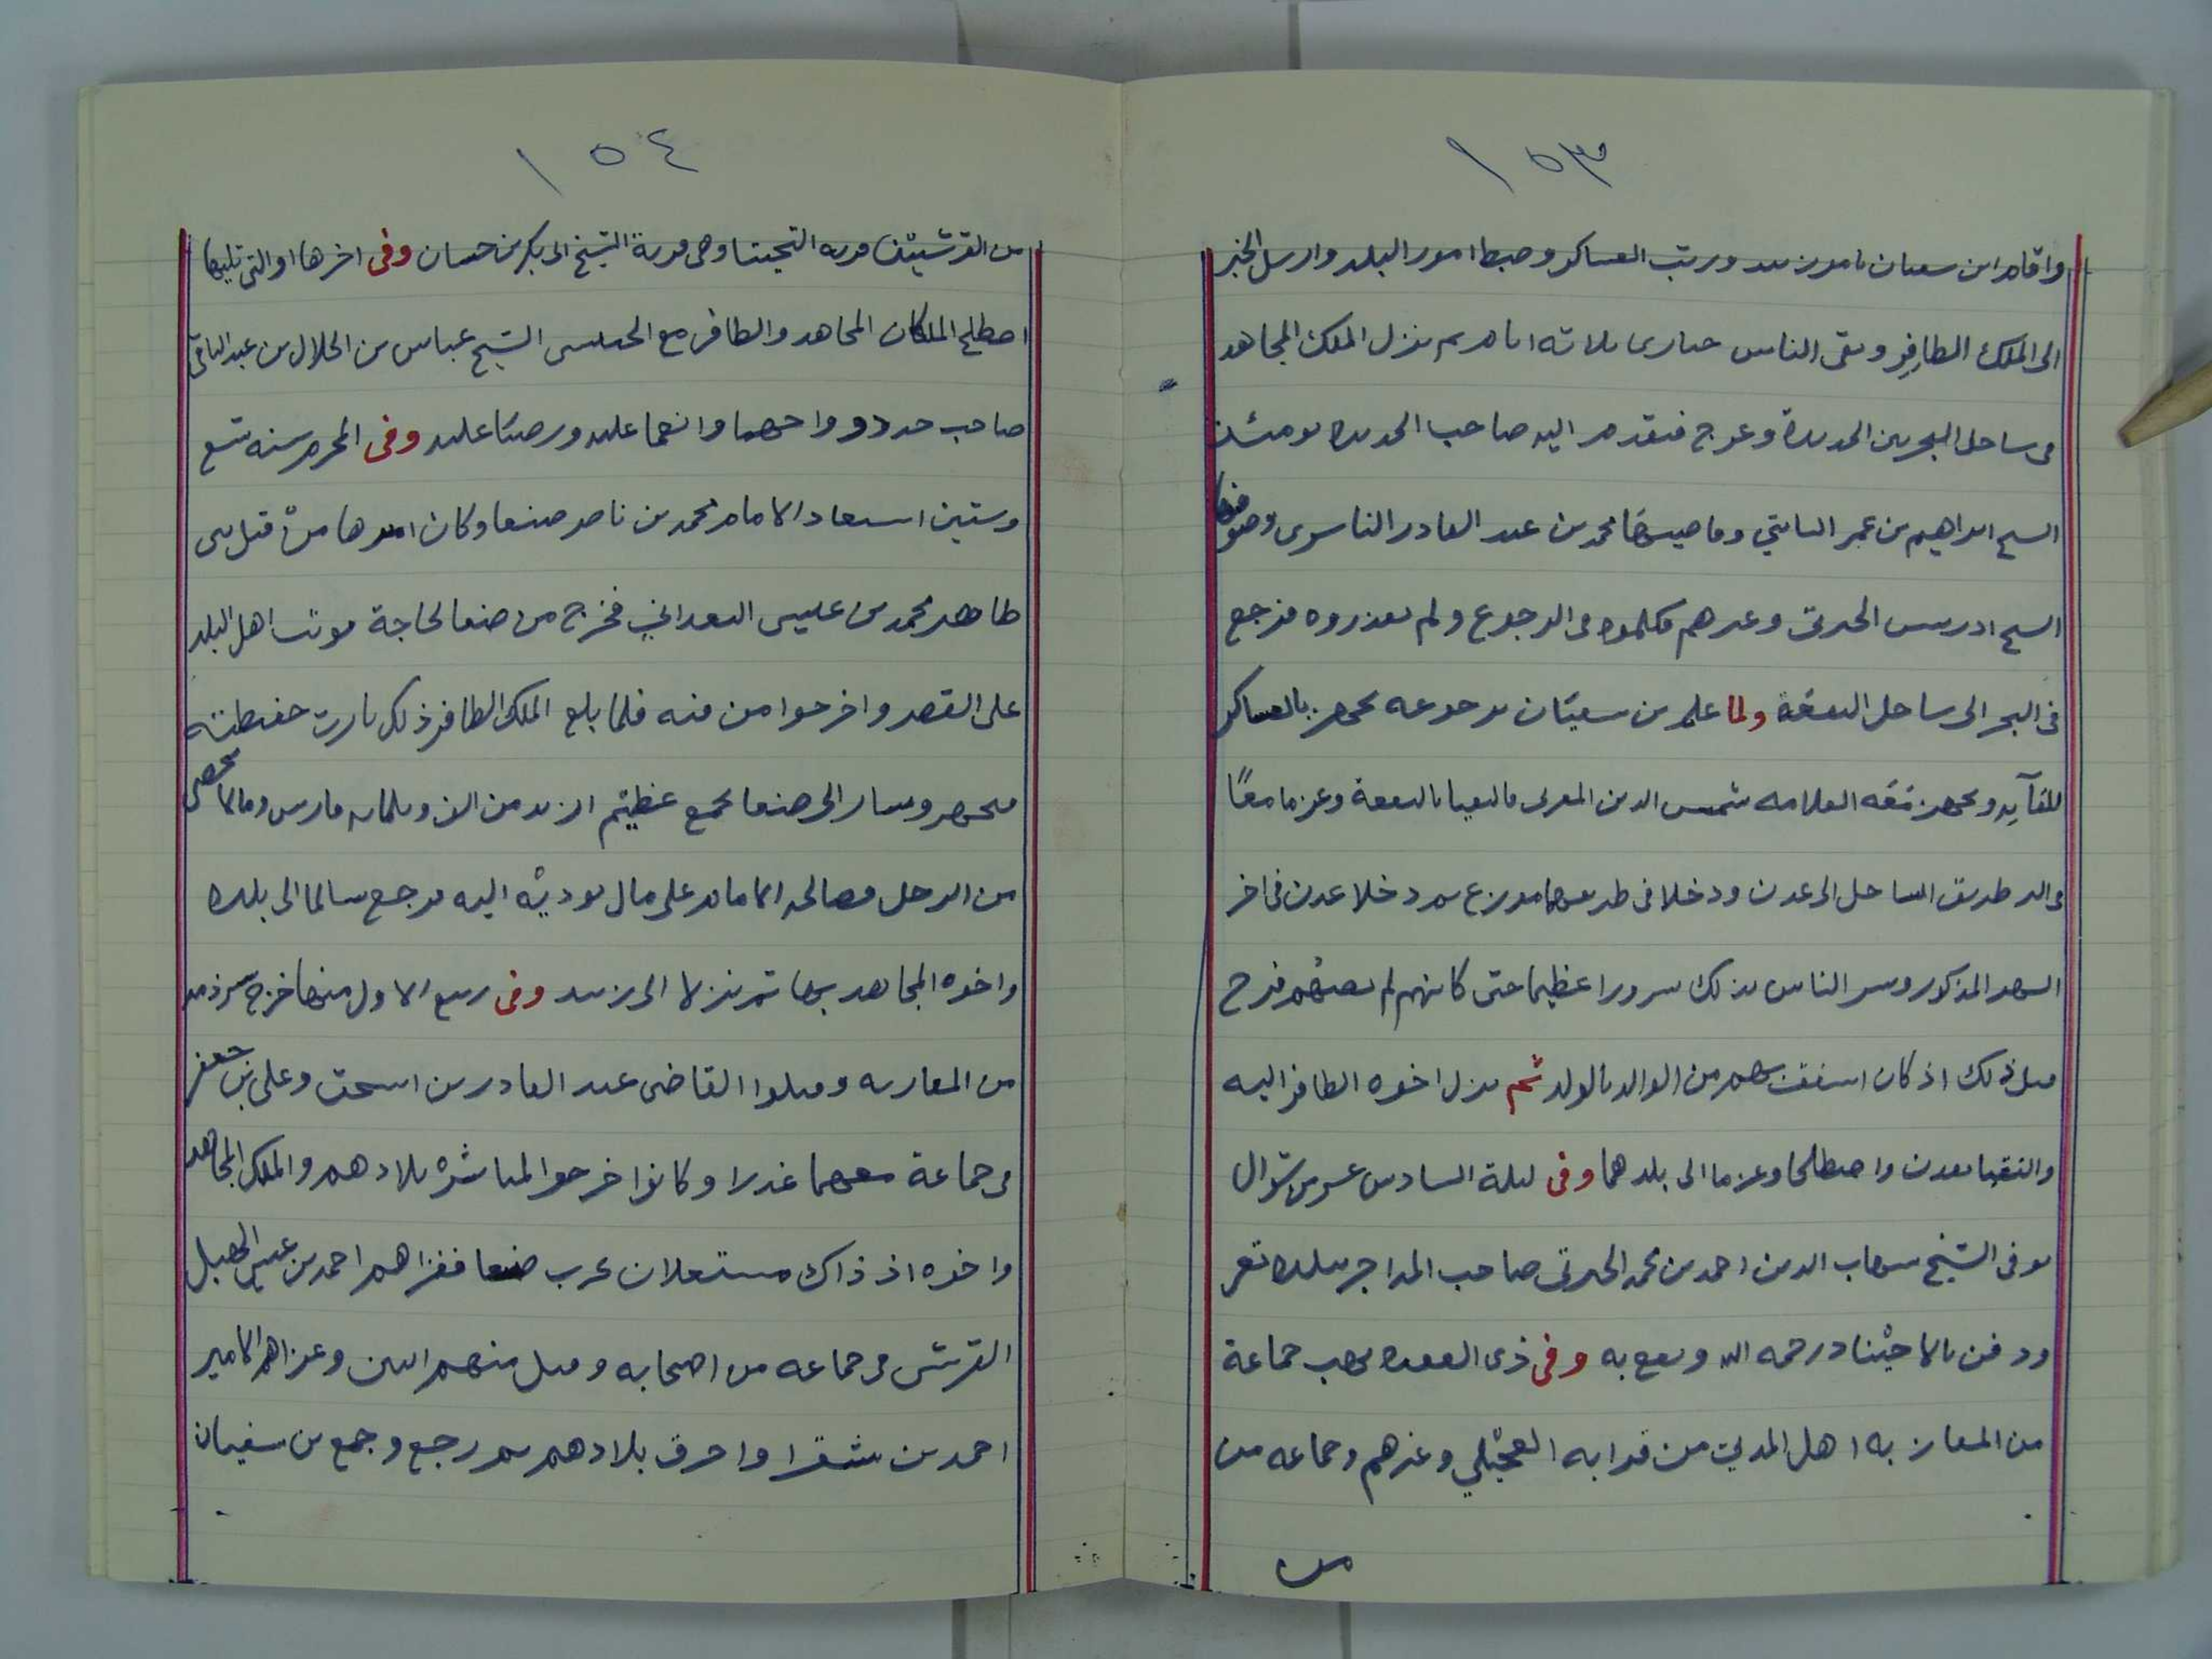 ١٥٣
واقام ابن سفيان بامور زبيد ورتب العساكر وضبط امور البلد وارسل الخبر
الى الملك الظافر وبقى الناس حيارى ثلاثه ايام ثم نزل الملك المجاهد
فى ساحل البحر من الحديدة وعرج فتقدم اليه صاحب الحديده يومئذ
الشيخ ابراهيم بن عمر الثابتي وقاضيها محمد بن عبد القادر الناشرى وصوفيها
الشيخ ادريس الجبرتى وغيرهم فكلموه فى الرجوع ولم يعذروه فرجع
فى البحر الى ساحل البقعة ولما علم بن سفيان برجوعه تجهز بالعساكر
للقآيه وتجهز معه العلامه شمس الدين المقرى فالتقيا بالبقعة وعزما معًا
فى البر طريق الساحل الى عدن ودخلا فى طريقهما موزع ثم دخلا عدن فى اخر
الشهر المذكور وسر الناس بذلك سرورا عظيما حتى كانهم لم يصبهم فرح
قبل ذلك اذ كان اشفق بهم من الوالد بالولد ثم نزل اخوه الظافر اليه
والتقيا بعدن واصطلحا وعزما الى بلدهما وفى ليلة السادس عشر من شوال
توفى الشيخ شهاب الدين احمد بن محمد الجبرتى صاحب المداجر ببلده تعز
ودفن بالاجيناد رحمه الله ونفع به وفى ذى القعده نهب جماعة
من المعازبه اهل المدبي من قرابه العجيلي وغيرهم وجماعه من
من
١٥٤
من القرشيين قريه التحيتا وهى قرية الشيخ ابى بكر بن حسان وفى اخرها او التى تليها
اصطلح الملكان المجاهد والظافر مع الحبيشى الشيخ عباس بن الجلال بن عبد الباقى
صاحب حردد وواجهما وانعما عليه ورضيا عليه وفى المحرم سنه تسع
وستين استعاد الامام محمد بن ناصر صنعا وكان اميرها من قبل بنى
طاهر محمد بن عيسى البعدانى فخرج من صنعا لحاجة فوثب اهل البلد
على القصر واخرجوا من فيه فلما بلغ الملك الظافر ذلك ثارت حفيظته
فتجهز وسار الى صنعا بجمع عظيم ازيد من الف وثلمايه فارس ومالا يحصى
من الرجل فصالحه الامام على مال يوديه اليه فرجع سالما الى بلده
واخوه المجاهد بها ثم نزلا الى زبيد وفى ربيع الاول منها خرج شرذمه
من المعازبه وقتلوا القاضى عبد القادر بن اسحق وعلى بن جعفر
فى جماعة معهما غدرا وكانوا خرجوا لمباشرة بلادهم والملك المجاهد
واخوه اذ ذاك مشتغلان بحرب صنعا فغزاهم احمد بن عيسى الهبل
القرشى فى جماعه من اصحابه وقتل منهم اثنين وغزاهم الامير
احمد بن شقرا واحرق بلادهم ثم رجع وجمع بن سفيان